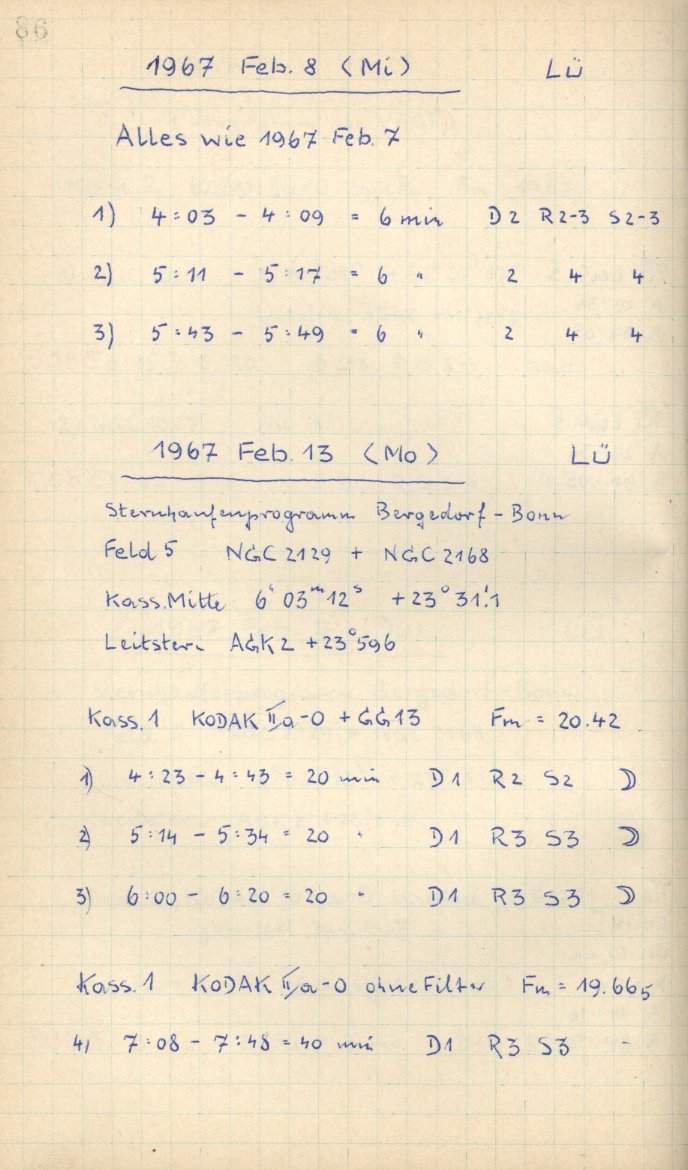 86
1967 Feb. 8 (Mi) LÜ
Alles wie 1967 Feb. 7
1) 4:03 - 4:09 = 6 min D2 R2-3 S2-3
2) 5:11 - 5:17 = 6 " 2 4 4
3) 5:43 - 5:49 = 6 " 2 4 4
1967 Feb. 13 (Mo) LÜ
Sternhaufenprogramm Bergedorf - Bonn
Feld 5 NGC 2129 + NGC 2168
Kass. Mitte 6ʰ 03ᵐ 12ˢ +23° 31!1
Leitstern AGK2 +23°596
Kass. 1 KODAK IIa-O + GG13 Fm = 20.42
1) 4:23 - 4:43 = 20 min D1 R2 S2 ☽
2) 5:14 - 5:34 = 20 " D1 R3 S3 ☽
3) 6:00 - 6:20 = 20 " D1 R3 S3 ☽
Kass. 1 KODAK IIa-O ohne Filter Fm = 19.665
4) 7:08 - 7:48 = 40 min D1 R3 S3 -